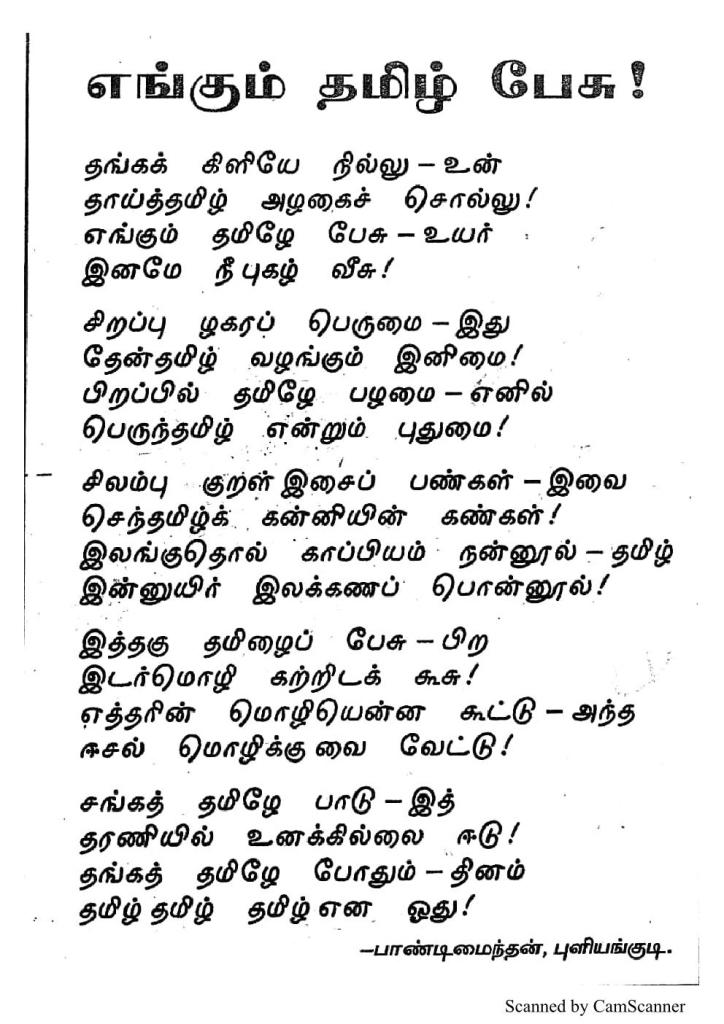 எங்கும் தமிழ் பேசு!
தங்கக் கிளியே நில்லு – உன்
தாய்த்தமிழ் அழகைச் சொல்லு!
எங்கும் தமிழே பேசு – உயர்
இனமே நீ புகழ் வீசு!
சிறப்பு ழகரப் பெருமை – இது
தேன்தமிழ் வழங்கும் இனிமை!
பிறப்பில் தமிழே பழமை – எனில்
பெருந்தமிழ் என்றும் புதுமை!
சிலம்பு குறள் இசைப் பண்கள் – இவை
செந்தமிழ்க் கன்னியின் கண்கள்!
இலங்குதொல் காப்பியம் நன்னூல் – தமிழ்
இன்னுயிர் இலக்கணப் பொன்னூல்!
இத்தகு தமிழைப் பேசு – பிற
இடர்மொழி கற்றிடக் கூசு!
எத்தரின் மொழியென்ன கூட்டு – அந்த
ஈசல் மொழிக்கு வை வேட்டு!
சங்கத் தமிழே பாடு – இத்
தரணியில் உனக்கில்லை ஈடு!
தங்கத் தமிழே போதும் – தினம்
தமிழ் தமிழ் தமிழ் என ஓது!
–பாண்டிமைந்தன், புளியங்குடி.
Scanned by CamScanner